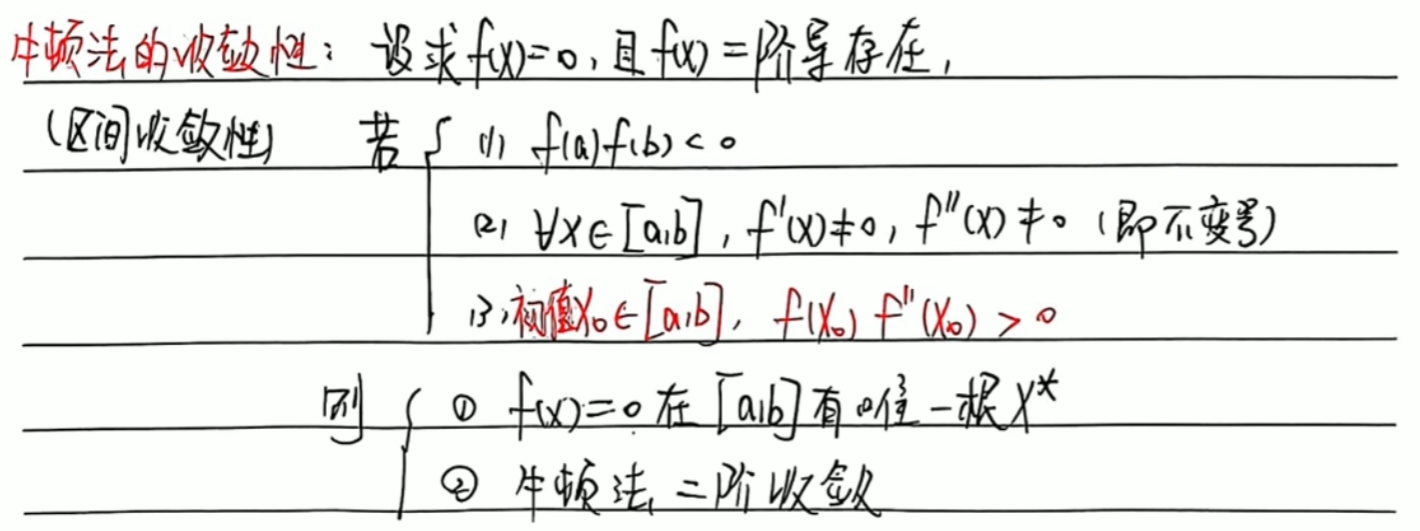 牛顿法的收敛性：设求f(x)=0，且f(x)二阶导存在，
（区间收敛性） 若 { (1) f(a)f(b)<0
(2) ∀x∈[a,b]，f'(x)≠0，f''(x)≠0（即不变号）
(3) 初值x₀∈[a,b]，f(x₀) f''(x₀) > 0
则 { ① f(x)=0 在 [a,b] 有唯一根 x*
② 牛顿法二阶收敛